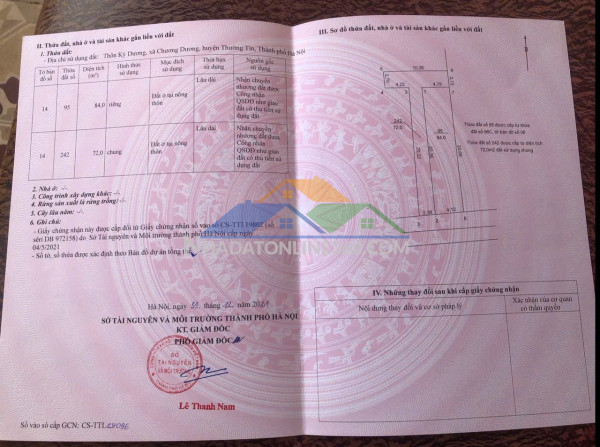 II. Thửa đất, nhà ở và tài sản khác gắn liền với đất
1. Thửa đất:
- Địa chỉ sử dụng đất: Thôn Kỳ Dương, xã Chương Dương, huyện Thường Tín, Thành phố Hà Nội
Tờ bản đồ số Thửa đất số Diện tích (m²) Hình thức sử dụng Mục đích sử dụng Thời hạn sử dụng Nguồn gốc sử dụng
14 95 84,0 riêng Đất ở tại nông thôn Lâu dài Nhận chuyển nhượng đất được Công nhận QSDĐ như giao đất có thu tiền sử dụng đất
14 242 72,0 chung Đất ở tại nông thôn Lâu dài Nhận chuyển nhượng đất được Công nhận QSDĐ như giao đất có thu tiền sử dụng đất
2. Nhà ở: -/-
3. Công trình xây dựng khác: -/-
4. Rừng sản xuất là rừng trồng: -/-
5. Cây lâu năm: -/-
6. Ghi chú:
- Giấy chứng nhận này được cấp đổi từ Giấy chứng nhận số vào sổ CS-TTI 19802 (số
seri: DB 972158) do Sở Tài nguyên và Môi trường thành phố Hà Nội cấp ngày
04/5/2021
- Số tờ, số thửa được xác định theo Bản đồ dự án tổng thể
Hà Nội, ngày tháng năm
SỞ TÀI NGUYÊN VÀ MÔI TRƯỜNG THÀNH PHỐ HÀ NỘI
KT. GIÁM ĐỐC
PHÓ GIÁM ĐỐC
SỞ
TÀI NGUYÊN
VÀ MÔI TRƯỜNG
Lê Thanh Nam
Số vào sổ cấp GCN: CS-TTI
III. Sơ đồ thửa đất, nhà ở và tài sản khác gắn liền với đất
242
72.0
95
84.0
Thửa đất số 242 được cấp có diện tích
72,0m2 đất sử dụng chung
IV. Những thay đổi sau khi cấp giấy chứng nhận
Nội dung thay đổi và cơ sở pháp lý
Xác nhận của cơ quan
có thẩm quyền